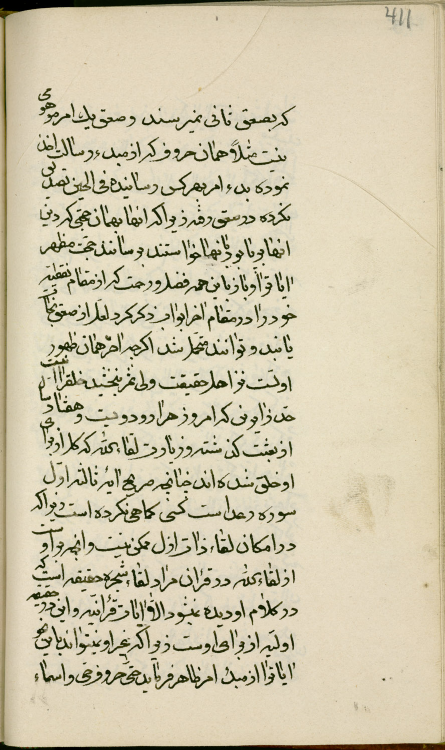 411
که بصعق ثانی نمیرسند و صعق یک امر موهومی
نیست مثلا همان حروف که از مبدء رسالت اخذ
نموده بدء امر بهر کس رسانیده فی الحین تصدیق
نکرده در صعق رفته زیرا که انها بهمان حجتی که دین
انها برپا بود بانها خواستند برسانند حجت مظهر
خود را در مقام اخر ابواب ذکر کرد لعل از صعق نجات
یابند و توانند متحمل شد اگرچه امر همان ظهور
اولست نزد اهل حقیقت ولی ثمر نبخشید خلق را
حتی الیومی که امروز هزار و دویست و هفتاد سال
از بعثت گذشته و زیارت لقاء الله که کل از برای
او خلق شده اند چنانچه صریح ایه نازله اول
سوره رعد است کسی کماهی نکرده است زیرا که
در امکان لقاء ذات ازل ممکن نیست و انچه
از لقاء الله در قران مراد لقاء شجره حقیقت است که
در کلام او دیده نمیشود الا ایات قرانیه و این
اولیه از برای اوست زیرا که غیر او نمیتواند
ایات را از مبدء امر ظاهر فرماید حتی حروف حی و اسماء